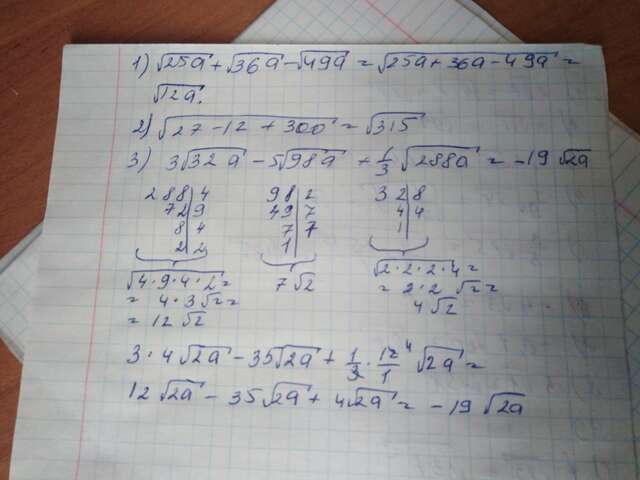 1) √25a + √36a - √49a = √25a + 36a - 49a =
√12a.
2) √27 - 12 + 300 = √315
3) 3√32a - 5√98a + 1/3 √288a = -19√2a
288|4 98|2 32|8
72|9 49|7 4|4
8|4 7|7 1|
2|2 1|
√4·9·4·2 = 7√2 √2·2·2·4 =
= 4·3√2 = = 2·2 √2 =
= 12√2 4√2
3·4√2a - 35√2a + 1/3 · 12/1 4 √2a =
12√2a - 35√2a + 4√2a = -19√2a